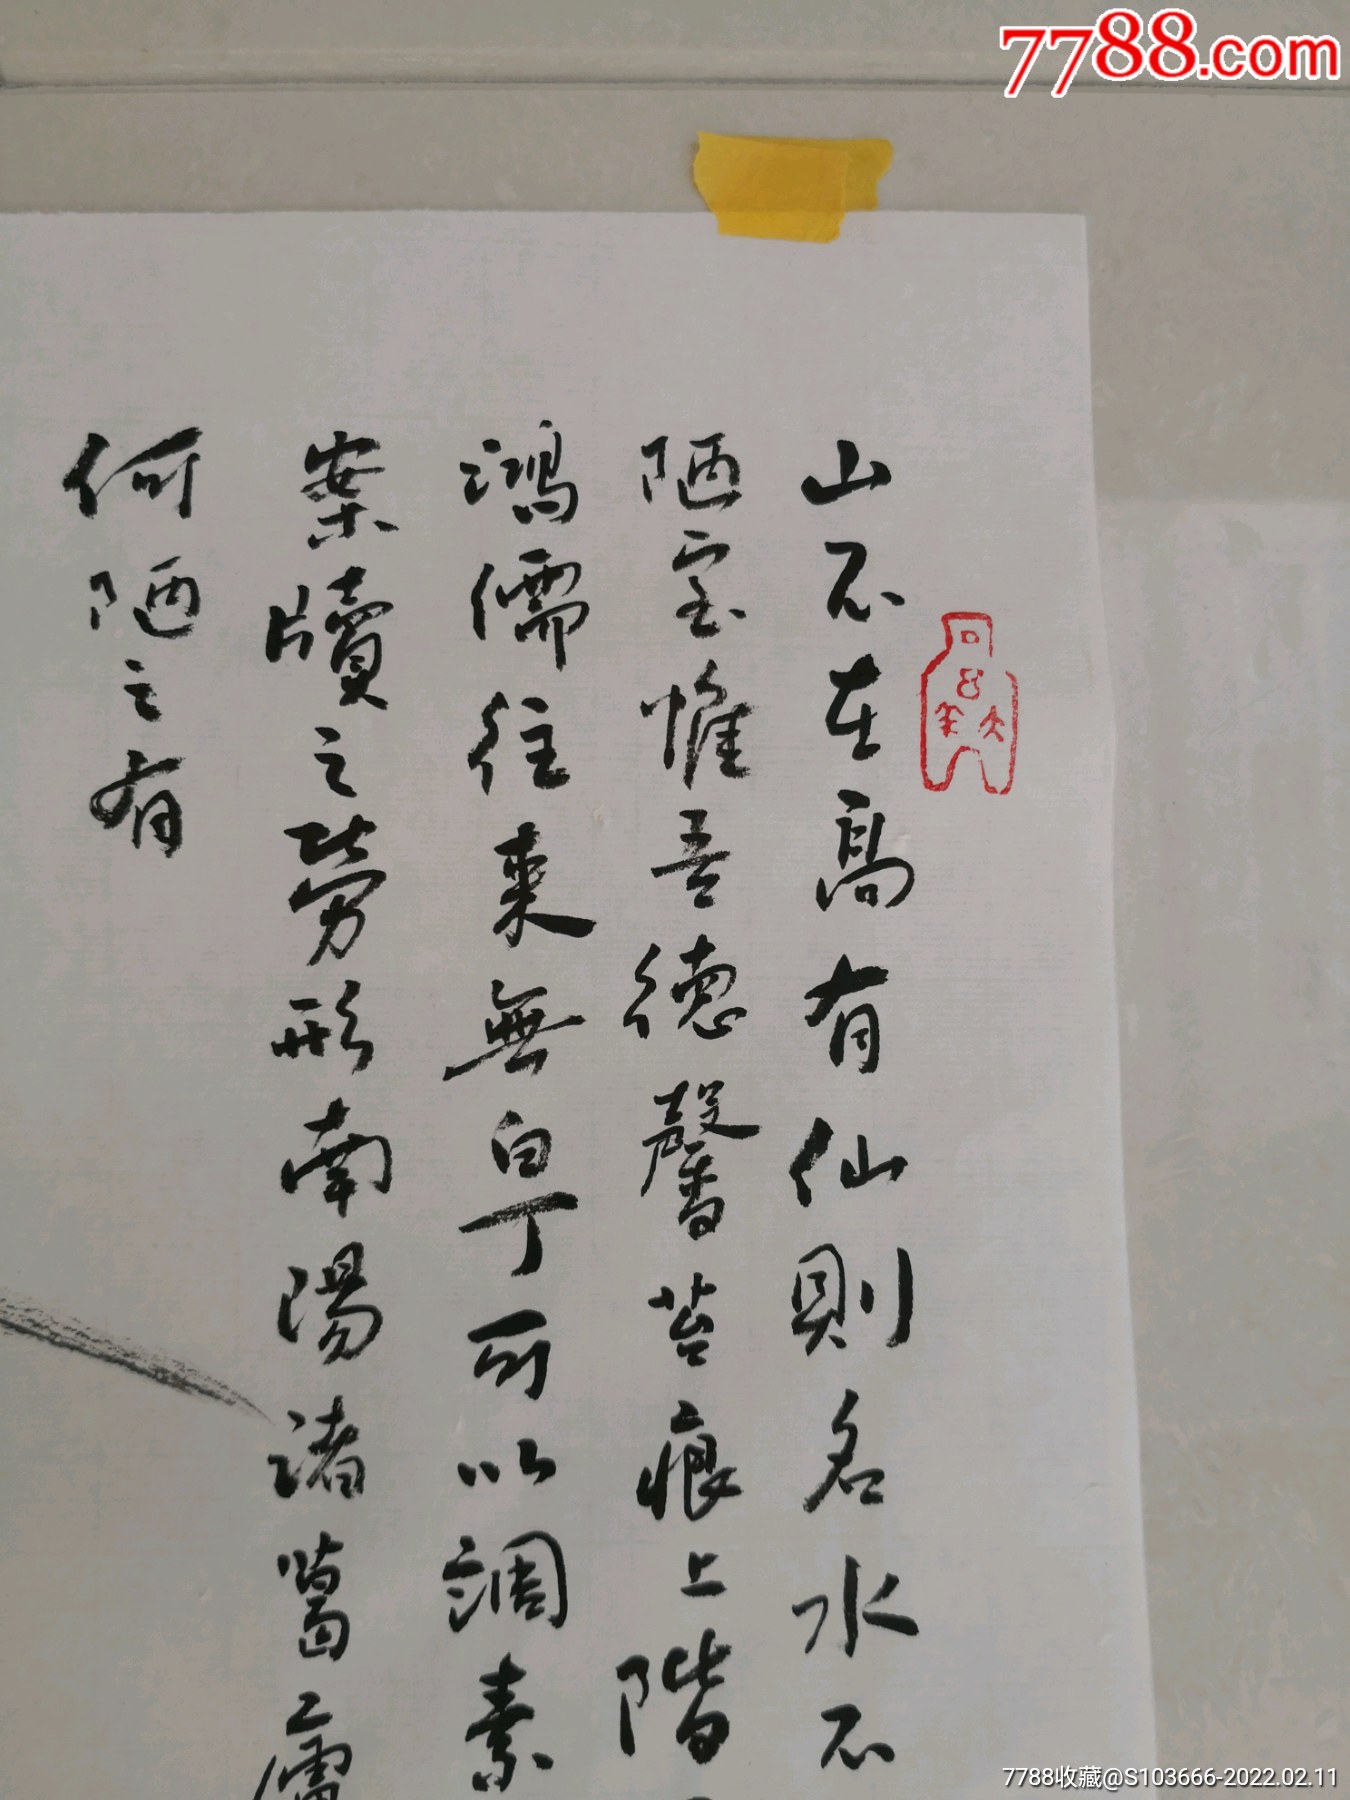 7788.com
山不在高有仙則名水不
陋室惟吾德馨苔痕上階
鴻儒往来無白丁可以調素
案牘之勞形南陽諸葛廬
何陋之有
7788收藏@S103666-2022.02.11